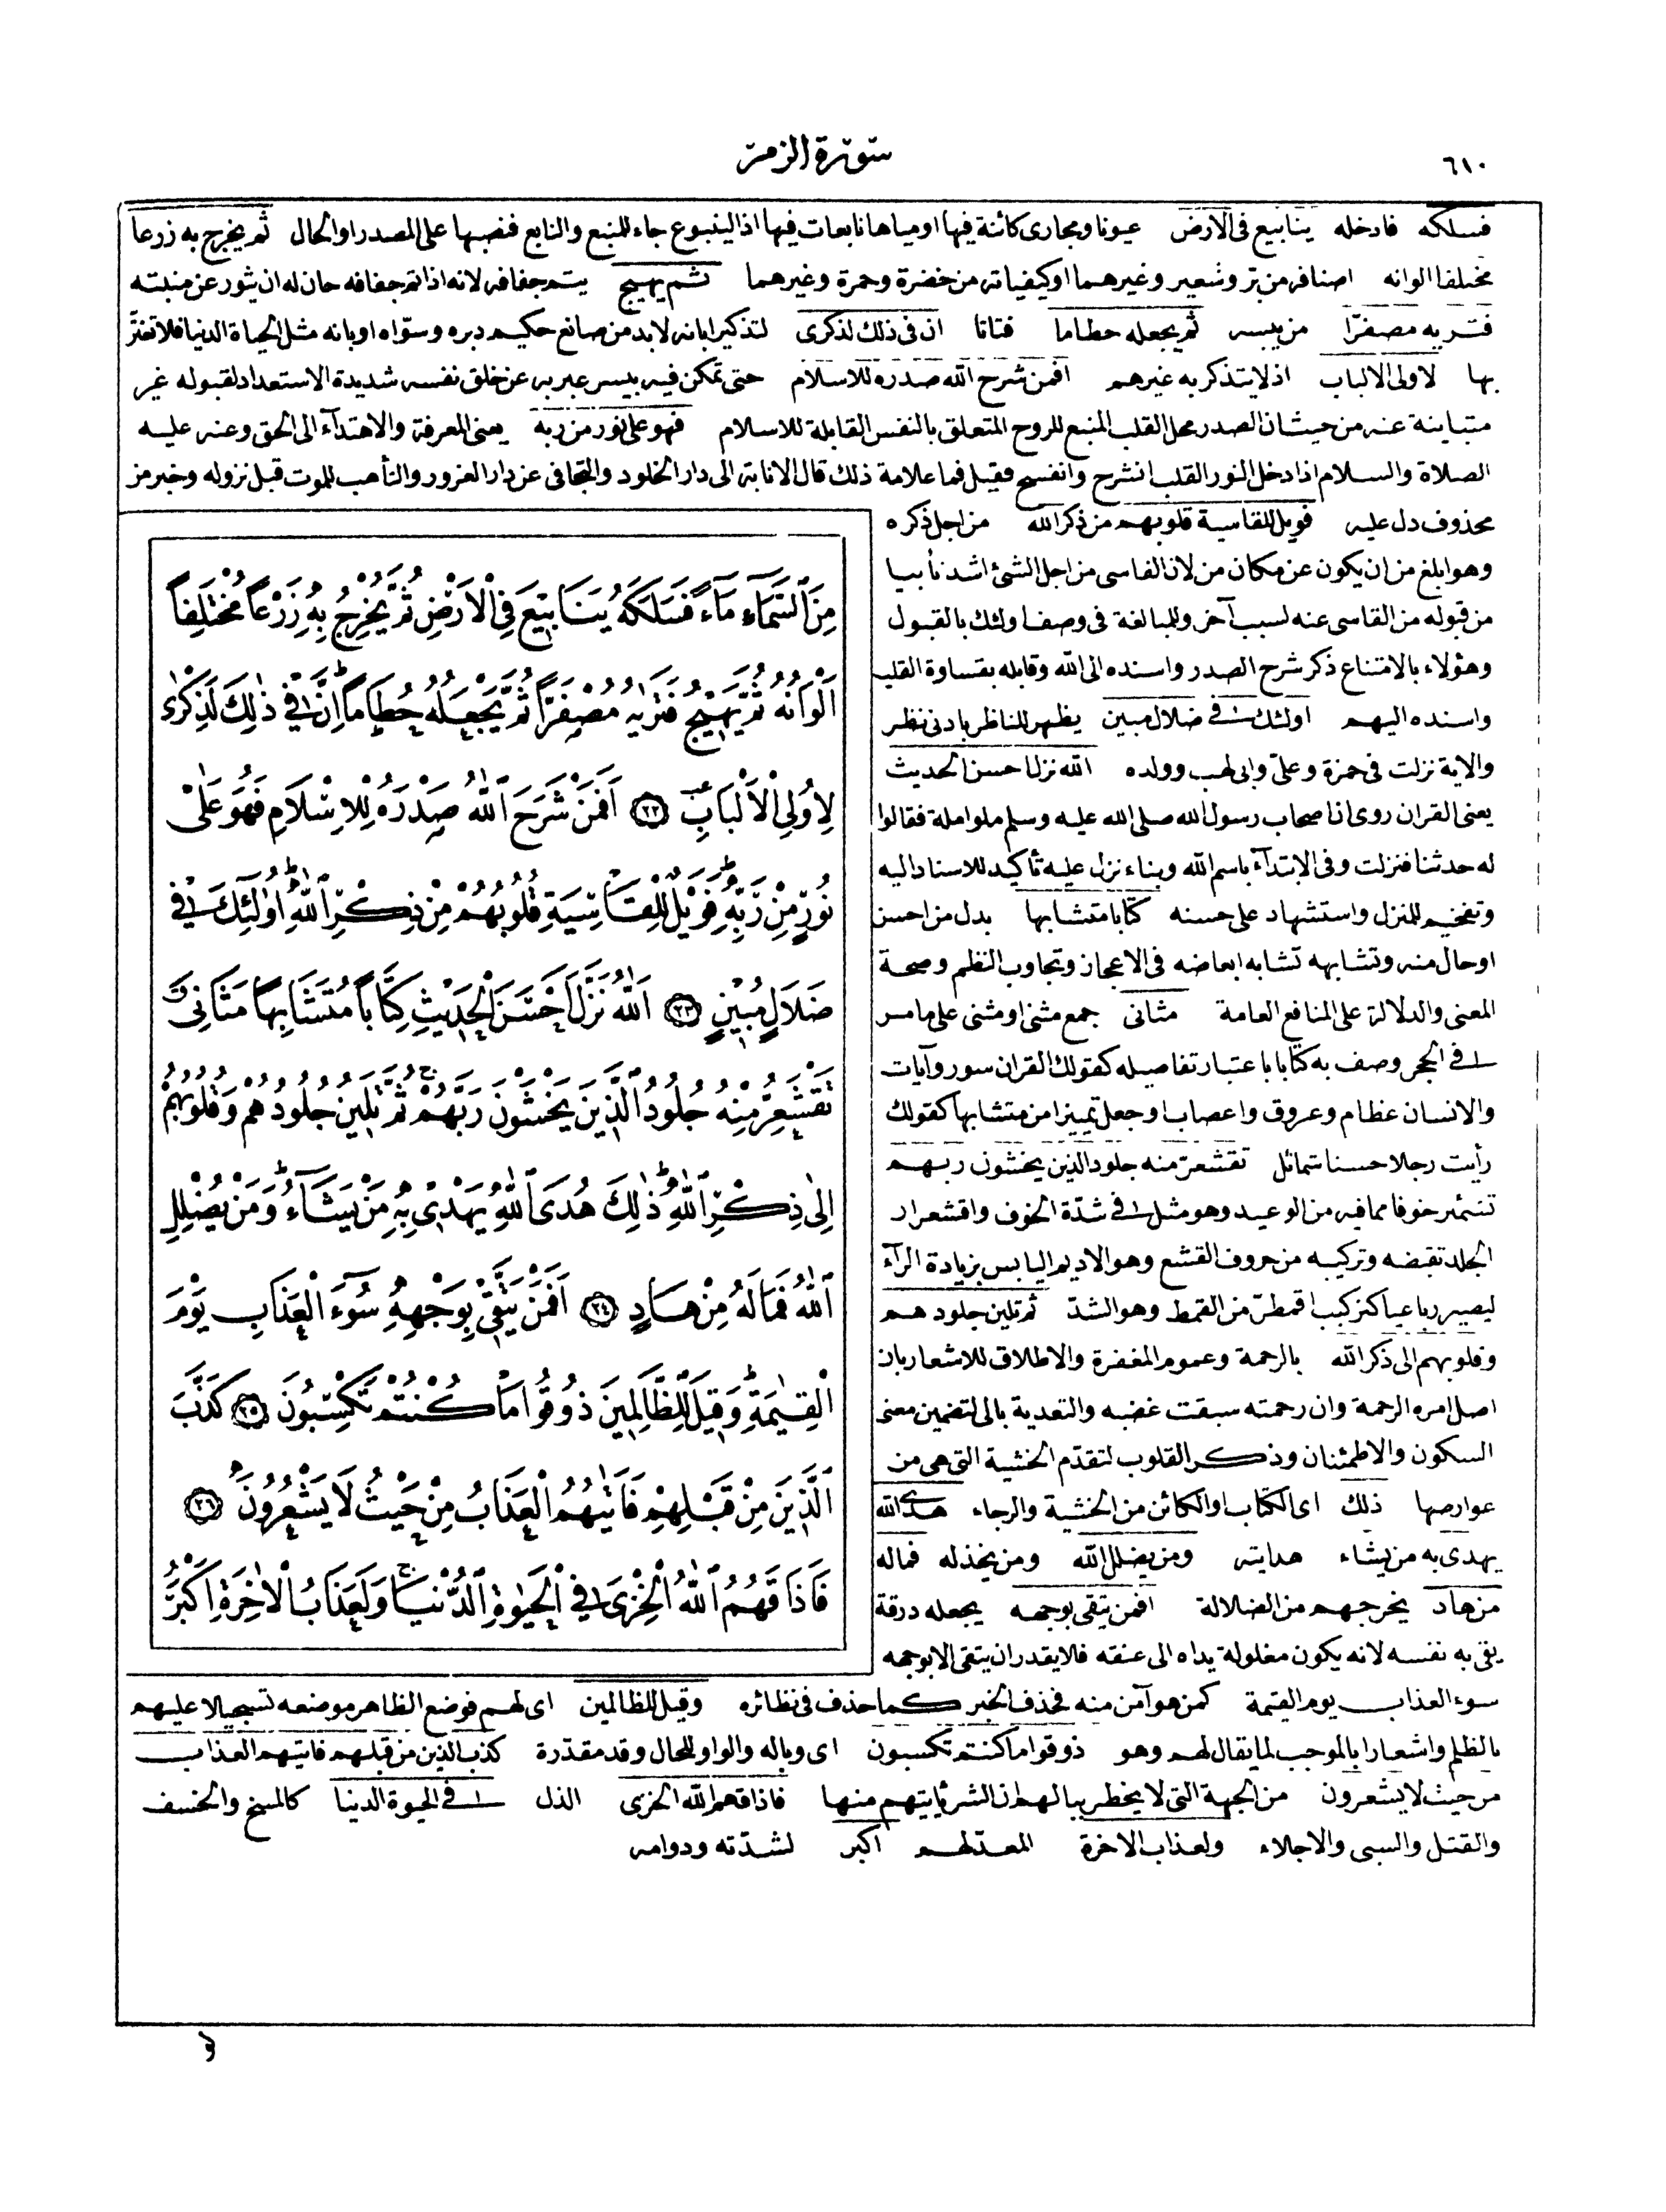 ٦١٠
سورة الزمر
فسلكه فادخله ينابيع فى الارض عيونا ومجارى كائنة فيها او مياها نابعات فيها اذ الينبوع جاء للمنبع والنابع فنصبها على المصدر او الحال ثم يخرج به زرعا
مختلفا الوانه اصنافه من بر وشعير وغيرهما او كيفياته من خضرة وحمرة وغيرهما ثم يهيج يتم جفافه لانه اذا تم جفافه حان له ان يثور عن منبته
فتريه مصفرّا من يبسه ثم يجعله حطاما فتاتا ان فى ذلك لذكرى لتذكيرا بانه لابد من صانع حكيم دبره وسوّاه او بانه مثل الحياة الدنيا فلا تغترّ
بها لاولى الالباب اذ لا يتذكر به غيرهم افمن شرح الله صدره للاسلام حتى تمكن فيه بيسر عبر به عن خلق نفسه شديدة الاستعداد لقبوله غير
متباينة عنه من حيث ان الصدر محل القلب المنبع للروح المتعلق بالنفس القابلة للاسلام فهو على نور من ربه يعنى المعرفة والاهتدآء الى الحق وعنه عليه
الصلاة والسلام اذا دخل النور القلب انشرح وانفسح فقيل فما علامة ذلك قال الانابة الى دار الخلود والتجافى عن دار الغرور والتأهب للموت قبل نزوله وخبر من
محذوف دل عليه فويل للقاسية قلوبهم من ذكر الله من اجل ذكره
وهو ابلغ من ان يكون عن مكان من لان القاسى من اجل الشئ اشد تأبيا
من قبوله من القاسى عنه لسبب آخر وللمبالغة فى وصف اولئك بالقبول
وهؤلاء بالامتناع ذكر شرح الصدر واسنده الى الله وقابله بقساوة القلب
واسنده اليهم اولئك فى ضلال مبين يظهر للناظر بادنى نظر
والاية نزلت فى حمزة وعلىّ وابى لهب وولده الله نزل احسن الحديث
يعنى القران روى ان اصحاب رسول الله صلى الله عليه وسلم ملوا ملة فقالوا
له حدثنا فنزلت وفى الابتدآء باسم الله وبناء نزل عليه تأكيد للاسناد اليه
وتفخيم للمنزل واستشهاد على حسنه كتابا متشابها بدل من احسن
او حال منه وتشابهه تشابه ابعاضه فى الاعجاز وتجاوب النظم وصحة
المعنى والدلالة على المنافع العامة مثانى جمع مثنى او مثنى على ما مر
فى الحجر وصف به كتابا باعتبار تفاصيله كقولك القران سور وآيات
والانسان عظام وعروق واعصاب او جعل تمييزا من متشابها كقولك
رأيت رجلا حسنا شمائل تقشعرّ منه جلود الذين يخشون ربهم
تشمئز خوفا مما فيه من الوعيد وهو مثل فى شدّة الخوف واقشعرار
الجلد تقبضه وتركيبه من حروف القشع وهو الاديم اليابس بزيادة الرآء
ليصير رباعيا كتركيب اقمطرّ من القمط وهو الشدّ ثم تلين جلودهم
وقلوبهم الى ذكر الله بالرحمة وعموم المغفرة والاطلاق للاشعار بان
اصل امره الرحمة وان رحمته سبقت غضبه والتعدية بالى لتضمين معنى
السكون والاطمئنان وذكر القلوب لتقدّم الخشية التى هى من
عوارضها ذلك اى الكتاب او الكائن من الخشية والرجاء هدى الله
يهدى به من يشاء هدايته ومن يضلل الله ومن يخذله فماله
من هاد يخرجهم من الضلالة افمن يتقى بوجهه يجعله درقة
يقى به نفسه لانه يكون مغلولة يداه الى عنقه فلا يقدر ان يتقى الا بوجهه
مِنَ السَّمَاءِ مَاءً فَسَلَكَهُ يَنَابِيعَ فِي الْاَرْضِ ثُمَّ يُخْرِجُ بِهِ زَرْعًا مُخْتَلِفًا
اَلْوَانُهُ ثُمَّ يَهِيجُ فَتَرٰيهُ مُصْفَرًّا ثُمَّ يَجْعَلُهُ حُطَامًا اِنَّ فِي ذٰلِكَ لَذِكْرٰى
لِاُولِي الْاَلْبَابِ ﴿٢٢﴾ اَفَمَنْ شَرَحَ اللّٰهُ صَدْرَهُ لِلْاِسْلَامِ فَهُوَ عَلٰى
نُورٍ مِنْ رَبِّهِ فَوَيْلٌ لِلْقَاسِيَةِ قُلُوبُهُمْ مِنْ ذِكْرِ اللّٰهِ اُولٰئِكَ فِي
ضَلَالٍ مُبِينٍ ﴿٢٣﴾ اَللّٰهُ نَزَّلَ اَحْسَنَ الْحَدِيثِ كِتَابًا مُتَشَابِهًا مَثَانِيَ
تَقْشَعِرُّ مِنْهُ جُلُودُ الَّذِينَ يَخْشَوْنَ رَبَّهُمْ ثُمَّ تَلِينُ جُلُودُهُمْ وَقُلُوبُهُمْ
اِلٰى ذِكْرِ اللّٰهِ ذٰلِكَ هُدَى اللّٰهِ يَهْدِي بِهِ مَنْ يَشَاءُ وَمَنْ يُضْلِلِ
اللّٰهُ فَمَا لَهُ مِنْ هَادٍ ﴿٢٤﴾ اَفَمَنْ يَتَّقِي بِوَجْهِهِ سُوءَ الْعَذَابِ يَوْمَ
الْقِيٰمَةِ وَقِيلَ لِلظَّالِمِينَ ذُوقُوا مَا كُنْتُمْ تَكْسِبُونَ ﴿٢٥﴾ كَذَّبَ
الَّذِينَ مِنْ قَبْلِهِمْ فَاَتٰيهُمُ الْعَذَابُ مِنْ حَيْثُ لَا يَشْعُرُونَ ﴿٢٦﴾
فَاَذَاقَهُمُ اللّٰهُ الْخِزْيَ فِي الْحَيٰوةِ الدُّنْيَا وَلَعَذَابُ الْاٰخِرَةِ اَكْبَرُ
سوء العذاب يوم القيمة كمن هو آمن منه فحذف الخبر كما حذف فى نظائره وقيل للظالمين اى لهم فوضع الظاهر موضعه تسجيلا عليهم
بالظلم واشعارا بالموجب لما يقال لهم وهو ذوقوا ما كنتم تكسبون اى وباله والواو للحال وقد مقدّرة كذب الذين من قبلهم فاتيهم العذاب
من حيث لا يشعرون من الجهة التى لا يخطر ببالهم ان الشر يأتيهم منها فاذاقهم الله الخزى الذل فى الحيوة الدنيا كالمسخ والخسف
والقتل والسبى والاجلاء ولعذاب الاخرة المعدّ لهم اكبر لشدّته ودوامه
لو